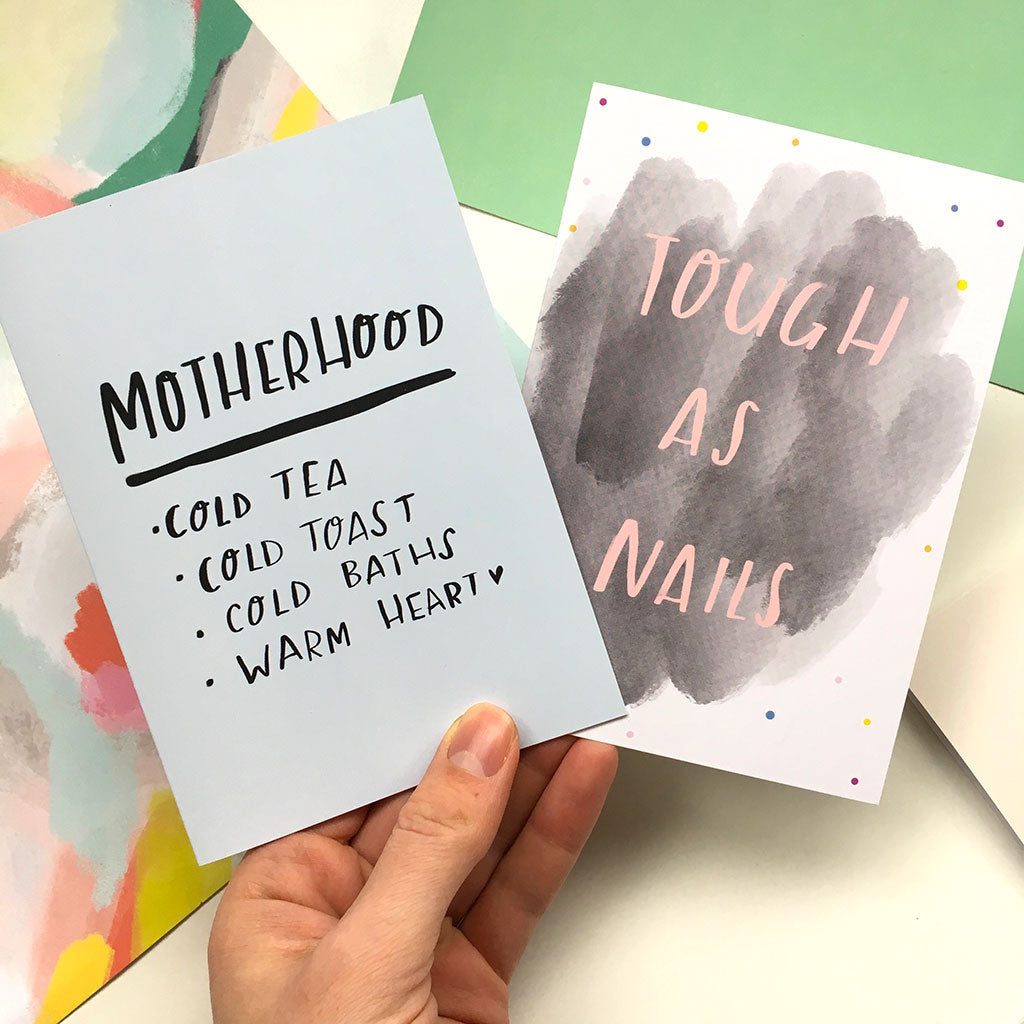 MOTHERHOOD
• COLD TEA
• COLD TOAST
• COLD BATHS
• WARM HEART ♥
TOUGH
AS
NAILS